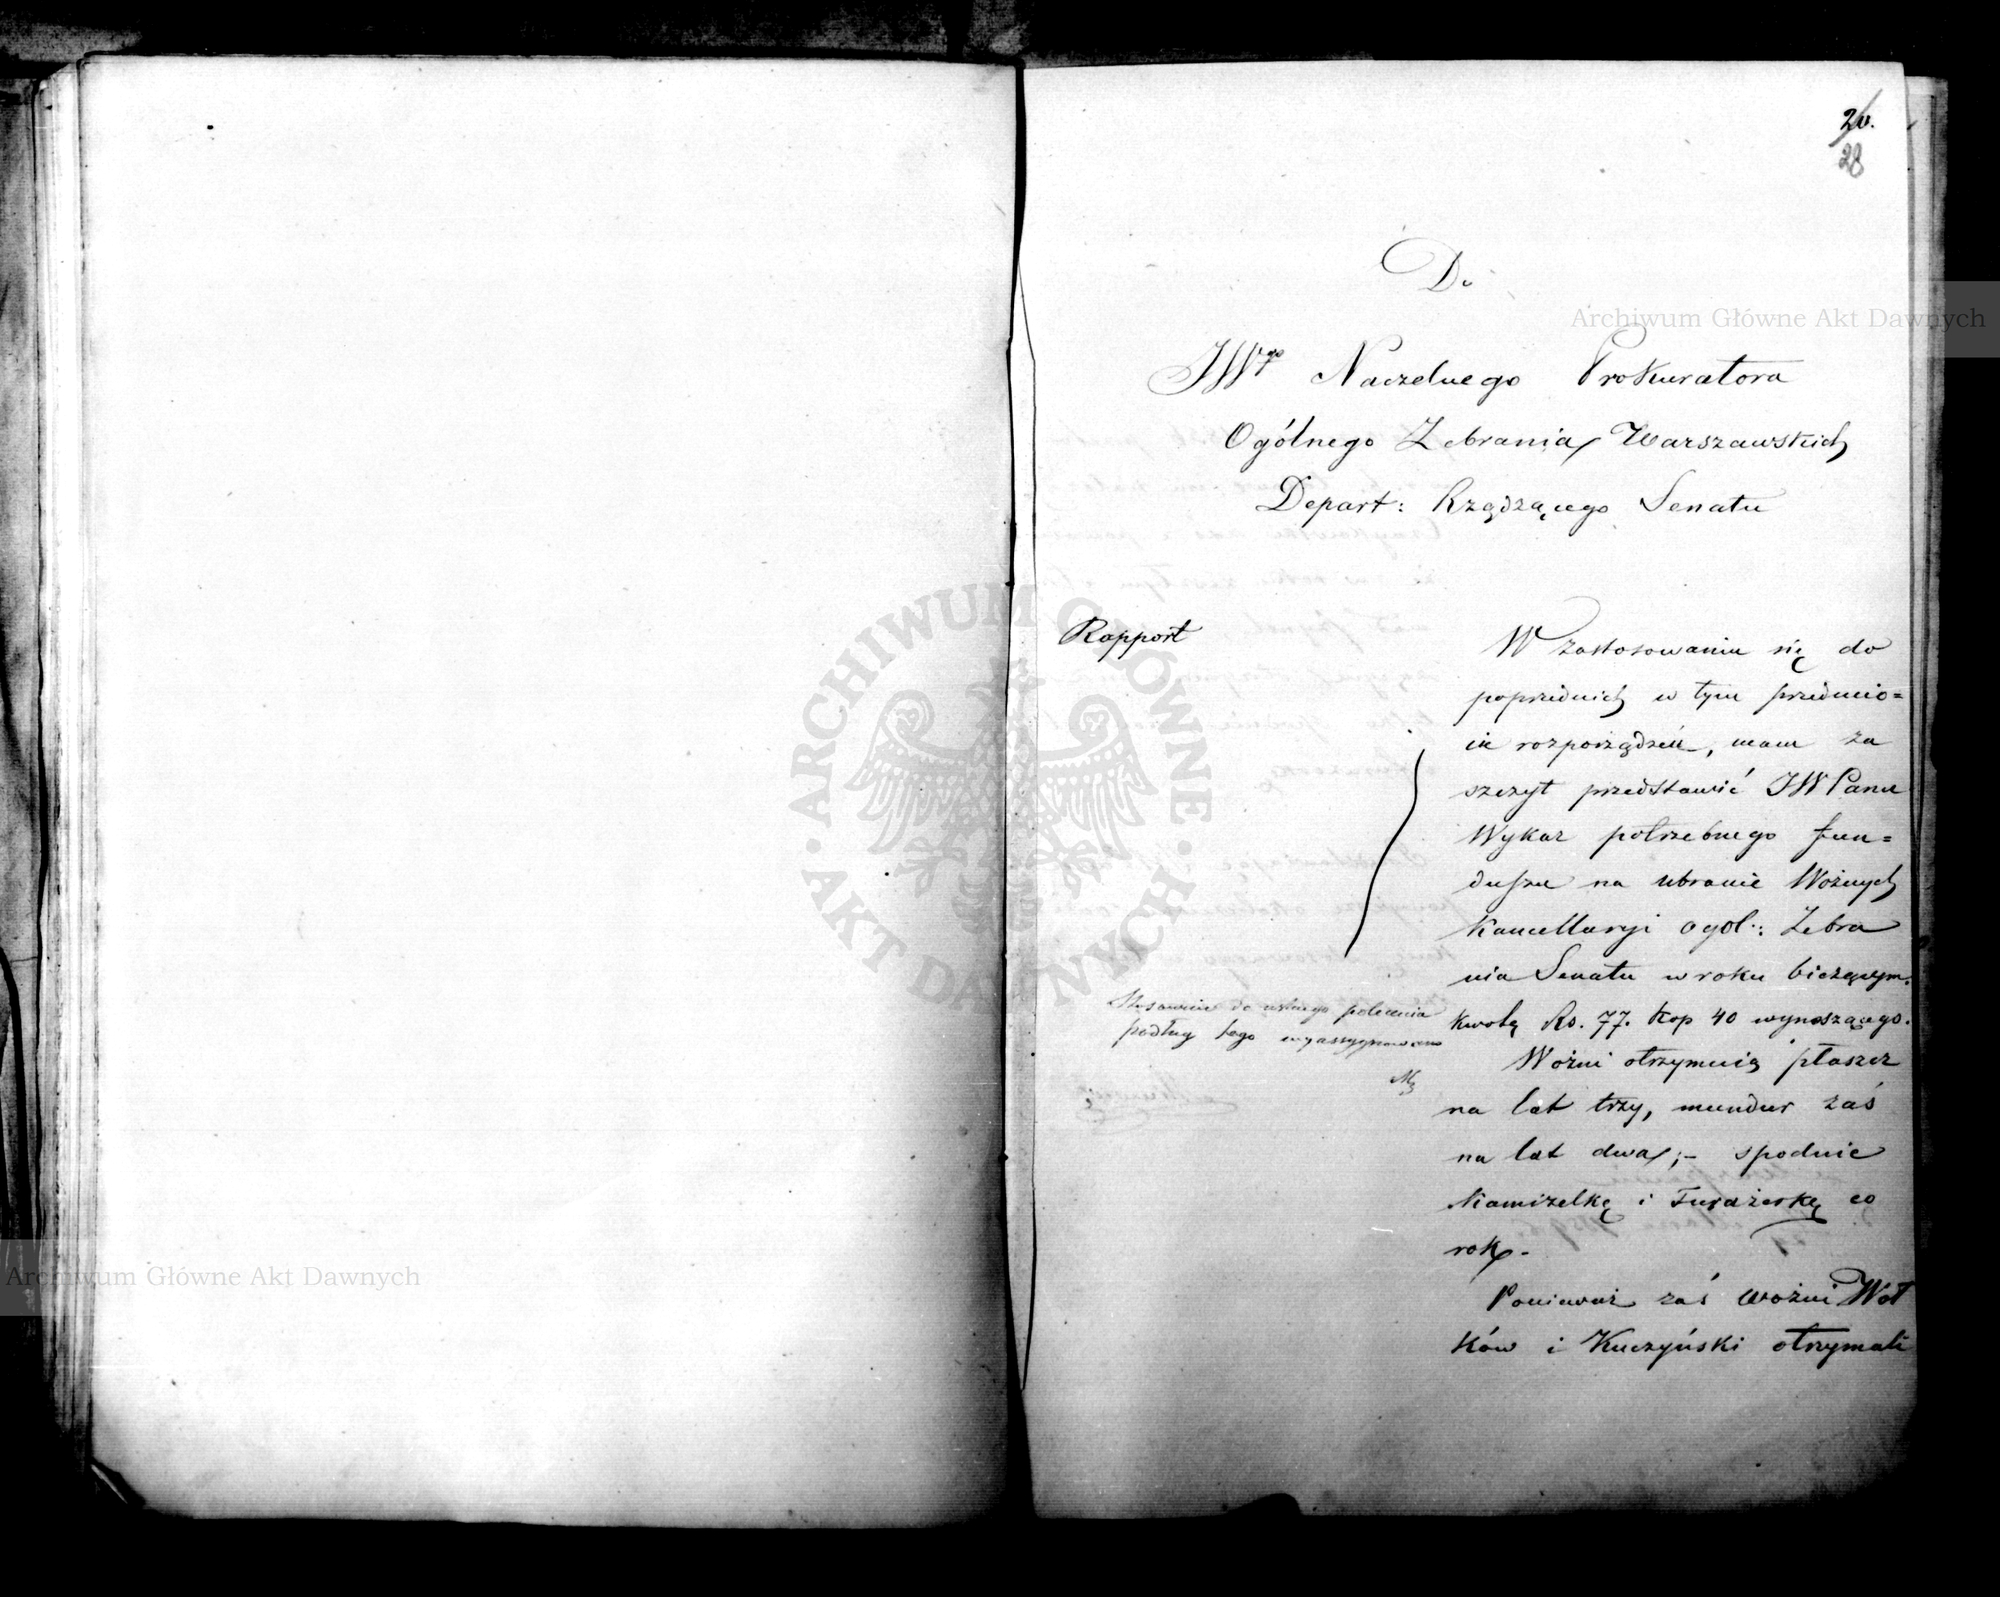 26.
28
Do
JWgo Naczelnego Prokuratora
Ogólnego Zebrania Warszawskich
Depart: Rządzącego Senatu
Rapport
W zastosowaniu się do
poprzednich w tym przedmio=
cie rozporządzeń, mam za
szczyt przedstawić JW Panu
Wykaz potrzebnego fun=
duszu na ubranie Woźnych
Kancellaryi ogól: Zebra
nia Senatu w roku bieżącym.
kwotę Rs. 77. kop 40 wynoszącego.
Woźni otrzymują płaszcz
na lat trzy, mundur zaś
na lat dwa;- spodnie
Kamizelkę i Furażerkę co
rok.-
Ponieważ zaś woźni Woł
ków i Kuczyński otrzymali
Stosownie do ustnego polecenia
podług tego wyassygnowano
ARCHIWUM GŁÓWNE AKT DAWNYCH
Archiwum Główne Akt Dawnych
Archiwum Główne Akt Dawnych